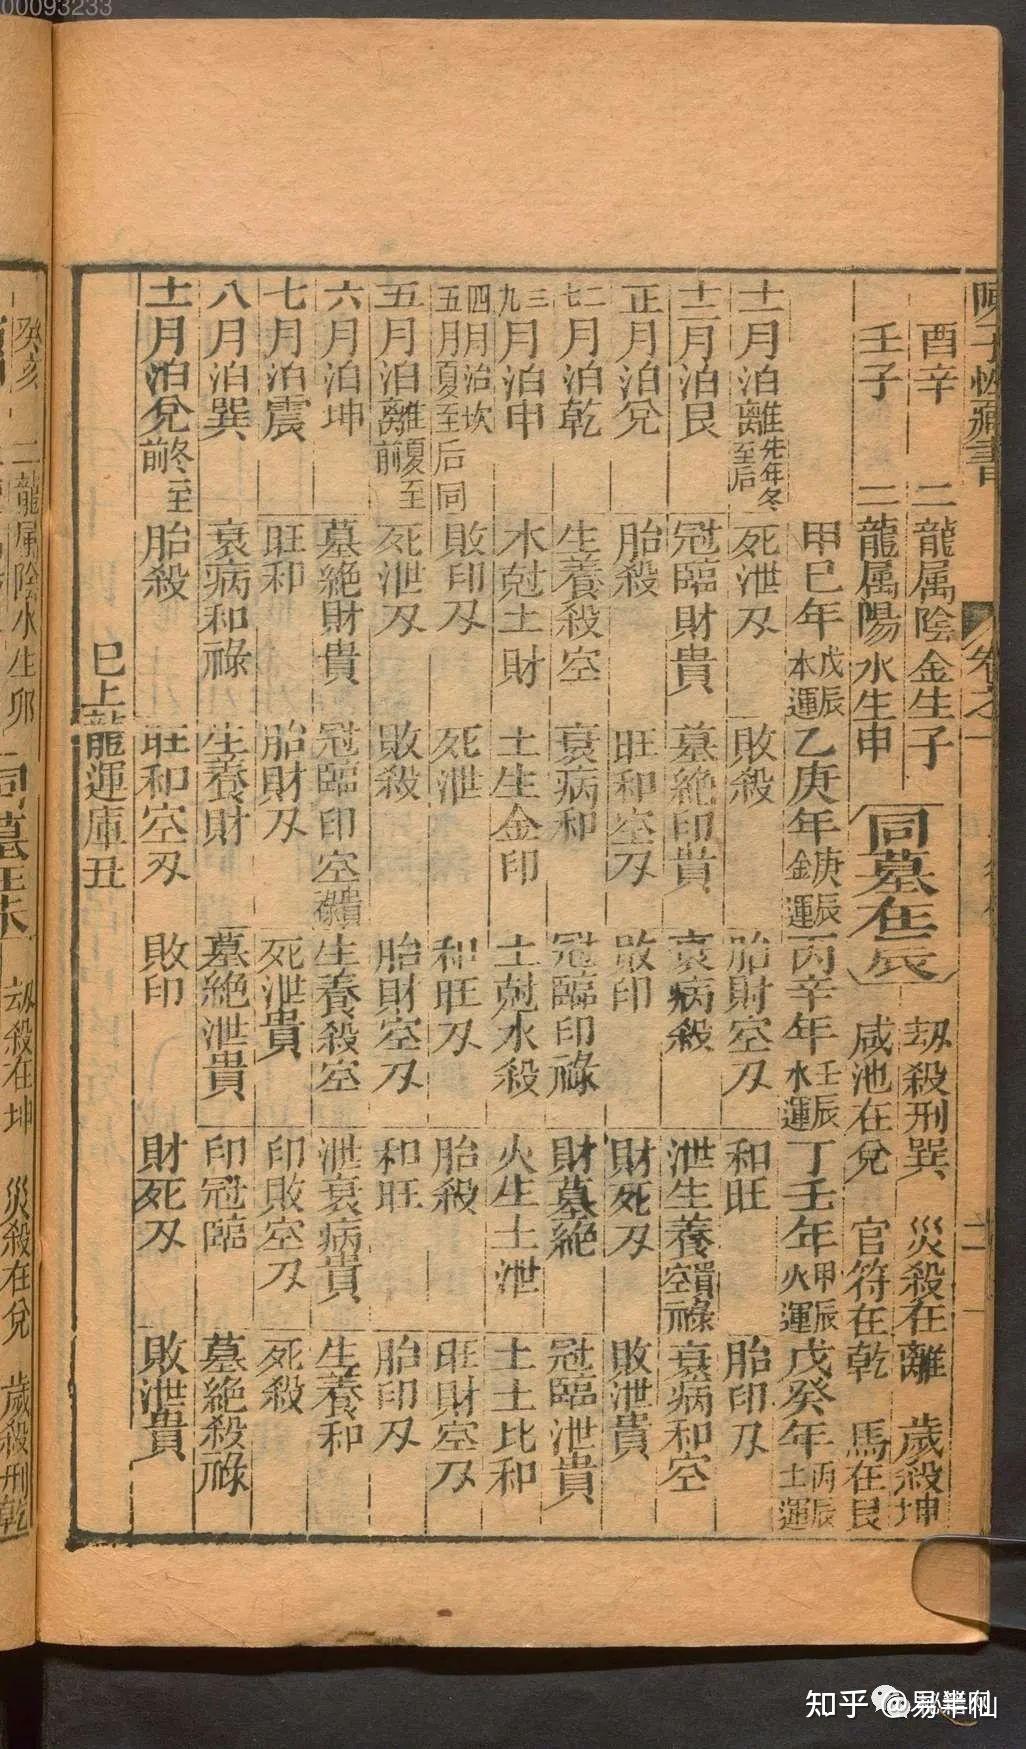 00093233
陳子性藏書
卷之一
酉辛 二龍属陰金生子 劫殺刑巽 災殺在離 歲殺坤
壬子 二龍属陽水生申 咸池在兌 官符在乾 馬在艮
同墓在辰
甲巳年戊辰木運 乙庚年庚辰金運 丙辛年壬辰水運 丁壬年甲辰火運 戊癸年丙辰土運
十一月泊離先年冬至后 死泄刄 敗殺 胎財空刄 和旺 胎印刄
十二月泊艮 冠臨財貴 墓絕印貴 衰病殺 泄生養空貴祿 衰病和空
正月泊兌 胎殺 旺和空刄 敗印 財死刄 敗泄貴
二七月泊乾 生養殺空 衰病和 冠臨印祿 財墓絕 冠臨泄貴
三九月泊申 木尅土財 土生金印 土尅水殺 火生土泄 土土比和
四月泊坎五月夏至后同 敗印刄 死泄 和旺刄 胎殺 旺財空刄
五月泊離夏至前 死泄刄 敗殺 胎財空刄 和旺 胎印刄
六月泊坤 墓絕財貴 冠臨印空貴祿 生養殺空 泄衰病貴 生養和
七月泊震 旺和 胎財刄 死泄貴 印敗空刄 死殺
八月泊巽 衰病和祿 生養財 墓絕泄貴 印冠臨 墓絕殺祿
十一月泊兌冬至前 胎殺 旺和空刄 敗印 財死刄 敗泄貴
巳上龍運庫丑
癸亥 二龍属陰水生卯 同墓在未 劫殺在坤 災殺在兌 歲殺刑乾
知乎 @易半仙